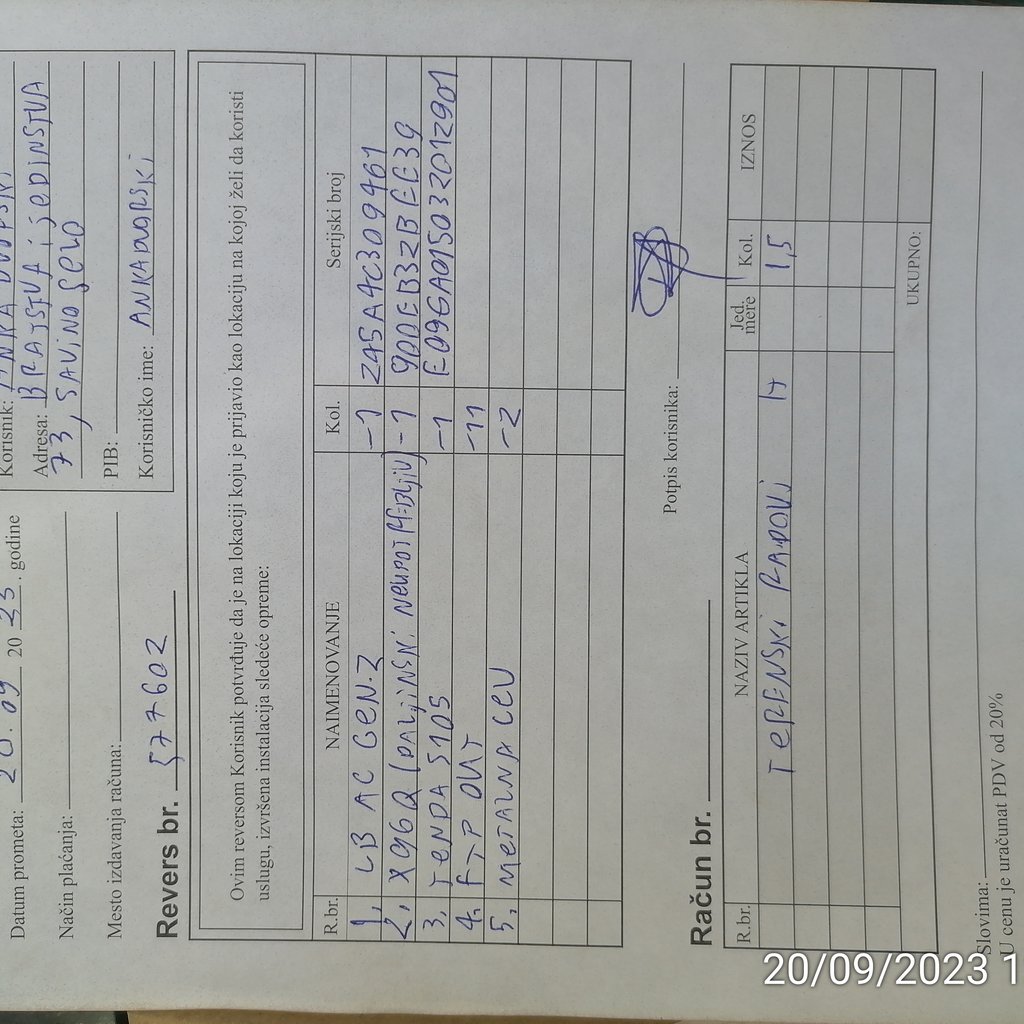 Datum prometa: 20.09 2023. godine
Način plaćanja:
Mesto izdavanja računa:
Korisnik: ANKA
Adresa: BRATSTVA i JEDINSTVA
73, SAVINO SELO
PIB:
Korisničko ime:
Revers br. 577602
Ovim reversom Korisnik potvrđuje da je na lokaciji koju je prijavio kao lokaciju na kojoj želi da koristi
uslugu, izvršena instalacija sledeće opreme:
R.br. NAIMENOVANJE Kol. Serijski broj
1. LB AC GEN.2 -1 245A4C309461
2. X96Q (DALJINSKI NEUPOTREBLJIV) -1 90DEB32BEE39
3. TENDA 5105 -1 E096A015032012901
4. FTP OUT -11
5. METALNA CEV -2
Potpis korisnika:
Račun br.
R.br. NAZIV ARTIKLA Jed. mere Kol. IZNOS
TERENSKI RADOVI H 1,5
UKUPNO:
Slovima:
U cenu je uračunat PDV od 20%
20/09/2023 1